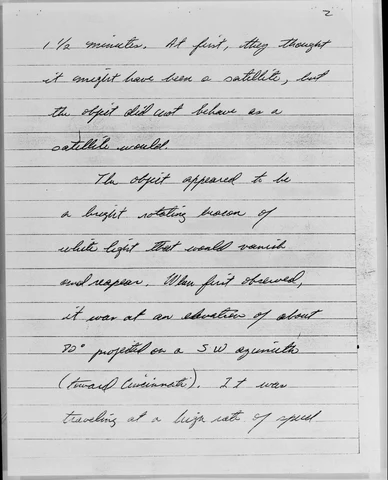 2
1 1/2 minutes. At first, they thought
it might have been a satellite, but
the objet did not behave as a
satellite would.
The objet appeared to be
a bright rotating beacon of
white light that would vanish
and reapear. When first observed,
it was at an elevation of about
20° projected on a SW azimuth
(toward Cincinnati). It was
traveling at a high rate of speed